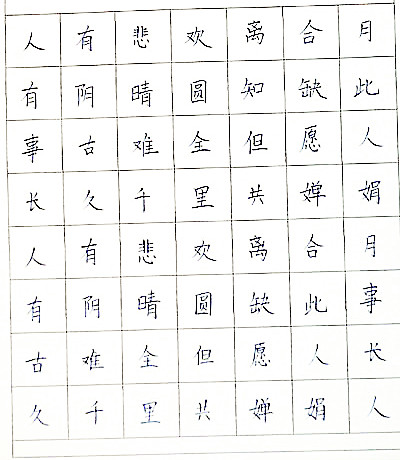 人有悲欢离合月
有阴晴圆知缺此
事古难全但愿人
长久千里共婵娟
人有悲欢离合月
有阴晴圆缺此事
古难全但愿人长
久千里共婵娟人